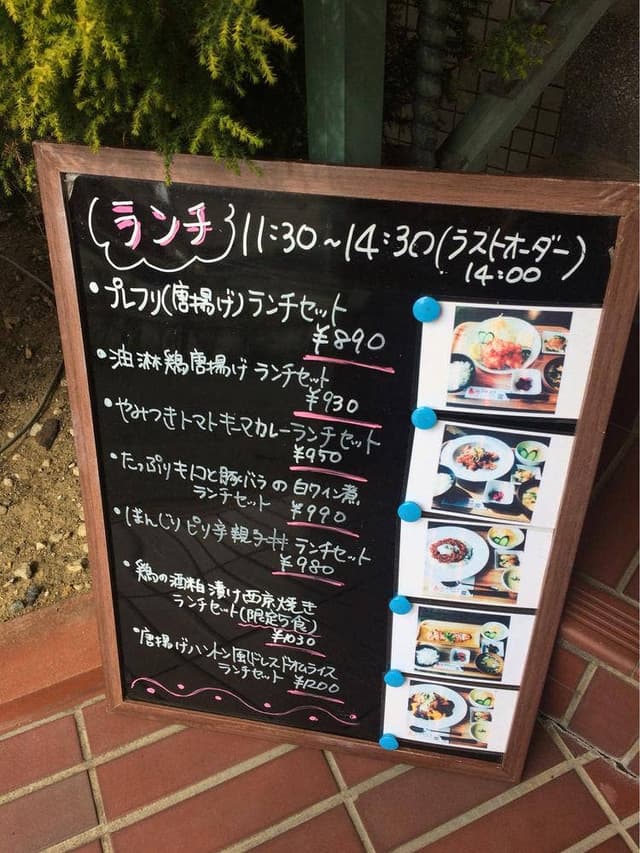 ランチ 11:30~14:30(ラストオーダー)
14:00
・プレフリ(唐揚げ)ランチセット
¥890
・油淋鶏唐揚げ ランチセット
¥930
・やみつきトマトキーマカレーランチセット
¥950
・たっぷりキノコと豚バラの白ワイン煮
ランチセット ¥990
・ぼんじりピリ辛親子丼 ランチセット
¥980
・鶏の酒粕漬け西京焼き
ランチセット(限定5食)
¥1030
・唐揚げハントン風ドレスドオムライス
ランチセット ¥1200